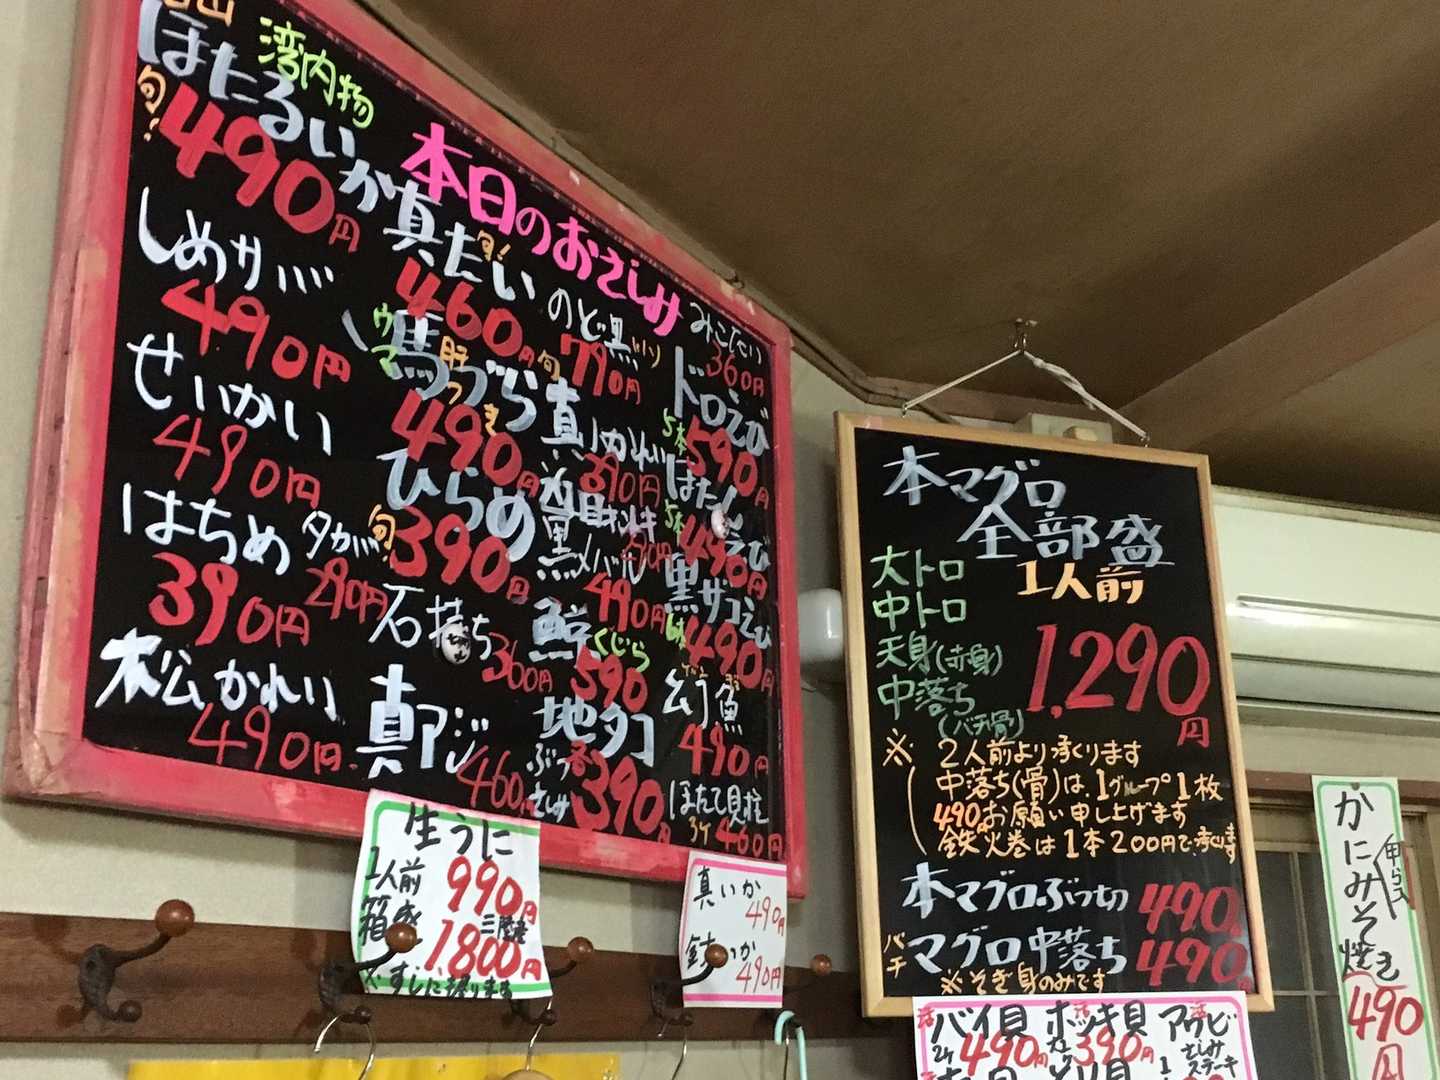 湾内物
ほたるいか
旬!
490円
本日のおさしみ
しめサバ
490円
せいかい
490円
はちめ
390円
タカバ
290円
松かれい
490円
真たい
旬!
460円
ウマ
馬づら
肝つき
490円
ひらめ
旬
390円
石持ち
360円
真アジ
460円
のど黒
旬
790円
真かれい
390円
黒メバル
490円
くじら
590
地タコ
ぶつ
さしみ
390円
360円
ドロえび
5本
590円
5本
490円
黒ザコえび
490円
幻魚
490円
ほたて貝柱
3ケ
460円
生うに
1人前
990円
箱盛
三陸産
1,800円
真いか
490円
490円
本マグロ
全部盛
1人前
大トロ
中トロ
天身(赤身)
中落ち
(バチ骨)
1,290円
※ 2人前より承ります
中落ち(骨)は、1グループ1枚
490円お願い申し上げます
鉄火巻は1本200円で承ります
本マグロぶつ切 490円
バチ
マグロ中落ち 490
※そぎ身のみです
活
バイ貝
2ケ
490円
活
ホッキ貝
390円
活
アワビ
さしみ
ステーキ
かにみそ
甲らス
焼き
490円